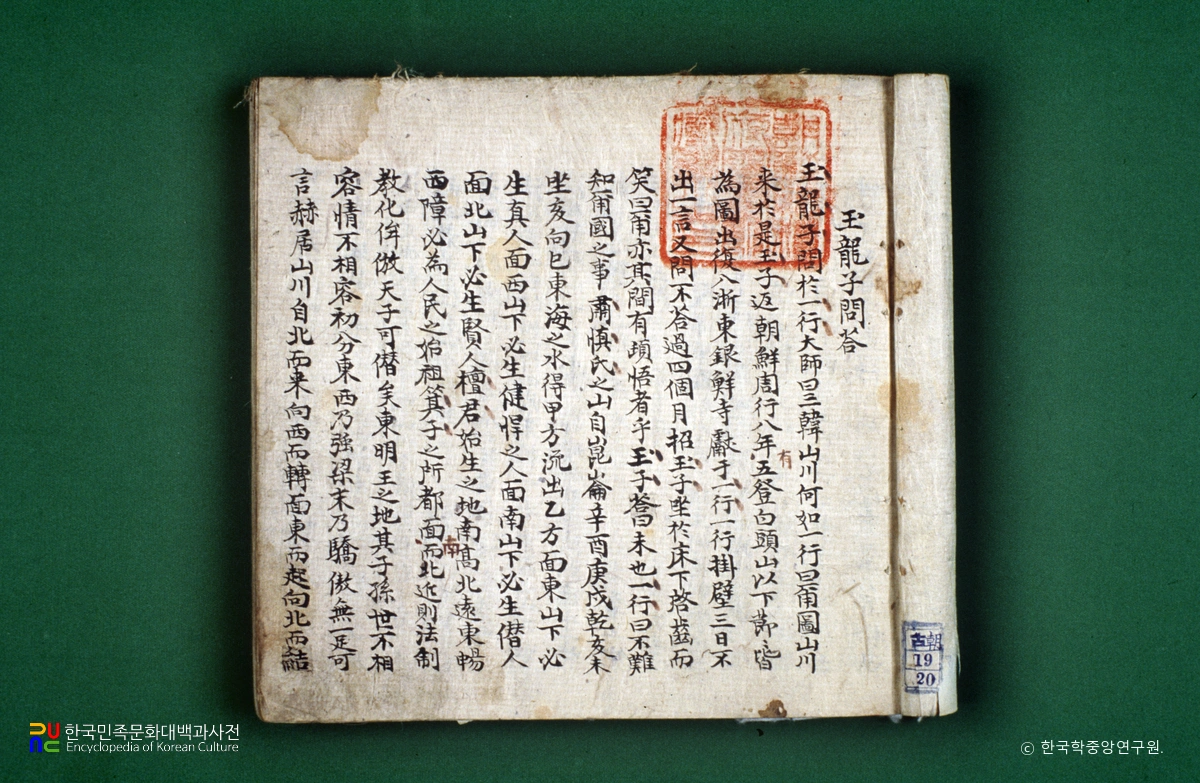 玉龍子問答
玉龍子問於一行大師曰三韓山川何如一行曰甫圖山川
来於是玉子返朝鮮周行八年五登白頭山以下節〻皆
有
為圖出復入浙東銀鮮寺獻于一行一行掛壁三日不
出一言又問不荅過四個月招玉子坐於床下啓齒而
笑曰甫亦其間有頭悟者乎玉子荅曰未也一行曰不難
知甭國之事肅慎氏之山自崑崙辛酉庚戌乾亥來
坐亥向巳東海之水得甲方流出乙方面東山下必
生真人面西山下必生健悍之人面南山下必生僭人
面北山下必生賢人檀君始生之地南高北遠東暢
西障必為人民之始祖箕子之所都面而北近則法制
南
教化侔倣天子可僭矣東明王之地其子孫世不相
容情不相容初分東西乃強梁末乃驕傲無足可
言赫居山川自北而来向西而轉面東而起向北而結
朝
古
19
20
한국민족문화대백과사전
Encyclopedia of Korean Culture
© 한국학중앙연구원.